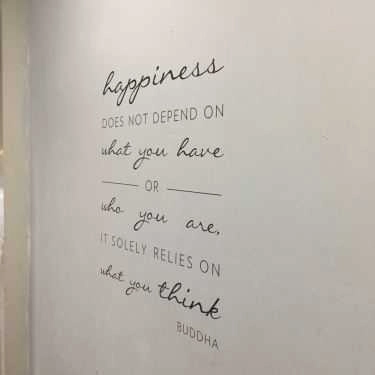 happiness
DOES NOT DEPEND ON
what you have
OR
who you are,
IT SOLELY RELIES ON
what you think
BUDDHA